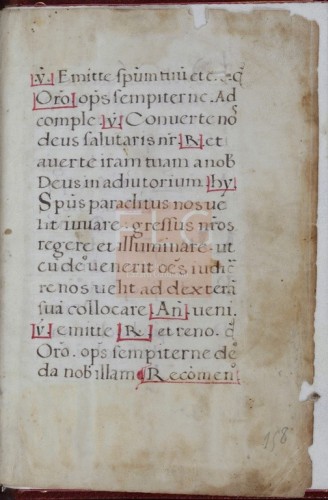 .v. Emitte spūm tuū et c. q̄
Orō oṗs sempiterne. Ad
comple. v. Converte no
deus salutaris nr̄. R. et
averte iram tuam a nob
Deus in adiutorium. hy
Spūs paraclitus nos ve
lit iuvare. gressus nr̄os
regere et illuminare. ut
cū deꝰ venerit oēs iudic̄
re nos velit ad dexterā
suā collocare. An̄ veni.
v. emitte R. et reno. q̄
Orō. oṗs sempiterne de
da nob illam Recōmen
158